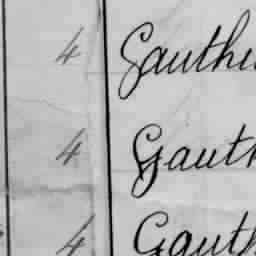 4 Gauthi
4 Gauth
4 Gauth